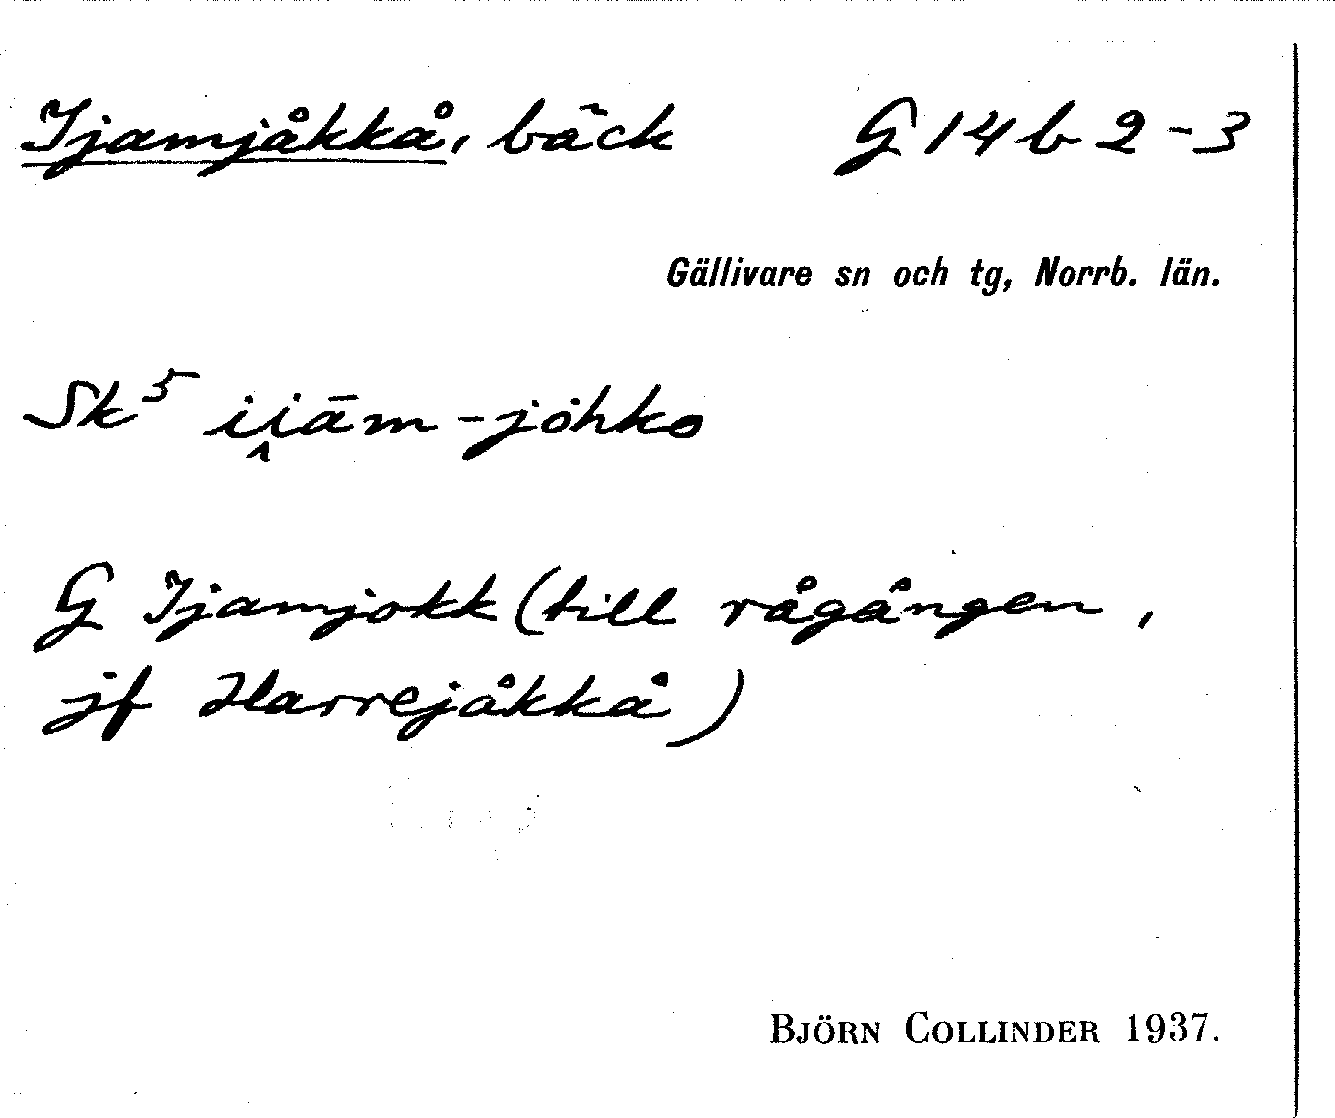 Ijamjåkkå, bäck G 14 b 2-3
Gällivare sn och tg, Norrb. län.
Sk⁵ ii̭ām-jòhko
G Ijamjokk (till rågången,
jf Harrejåkkå)
BJÖRN COLLINDER 1937.